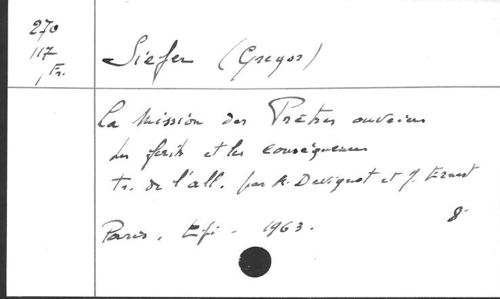 270
117
/Fr.
Siefer (Gregor)
La Mission des Prêtres ouvriers
Les faits et les conséquences
tr. de l'all. par A. Deviguet et J. Ernest
Paris. Epi. 1963.
8°